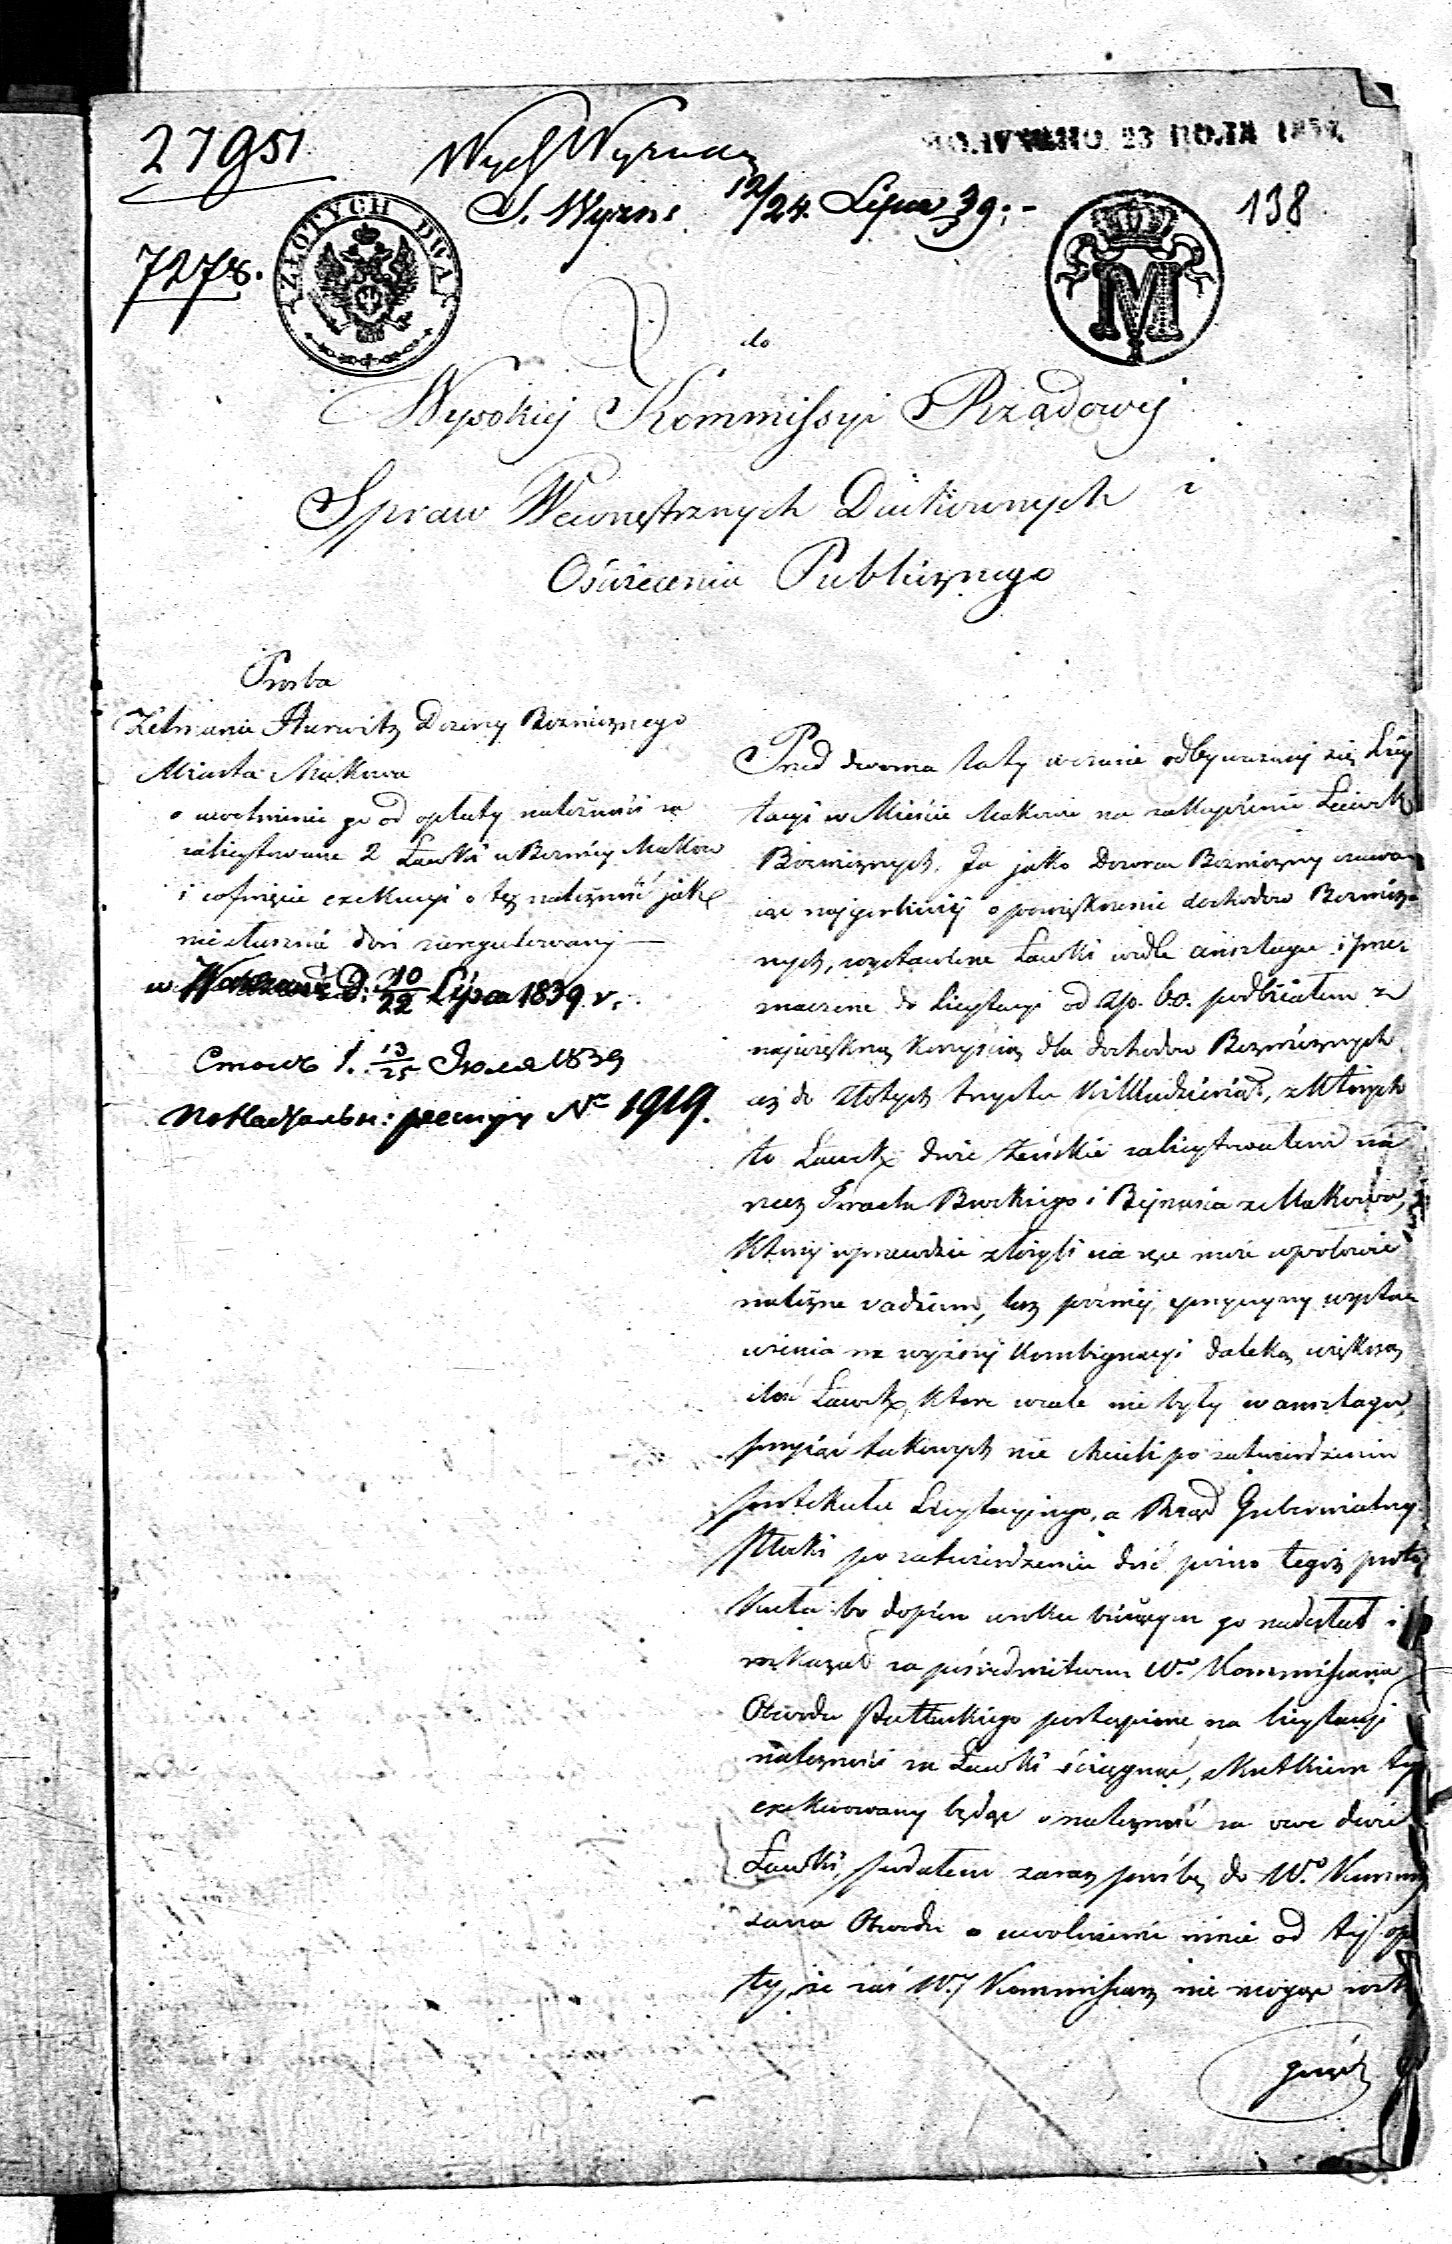 27951
Wydz Wyznań
ПОЛУЧЕНО 23 ІЮЛЯ 1839
S. Wyzns 12/24. Lipca 39.-
138
7278.
ZŁOTYCH DWA
M
do
Wysokiej Kommissyi Rządowej
Spraw Wewnętrznych Duchownych i
Oświecenia Publicznego
Prosba
Zelmana Hurwitz Dozorcy Boznicznego
Miasta Makowa
o uwolnienie go od opłaty należności za
zalicytowane 2 Ławki w Boznicy Makow
i cofnięcie exekucyi o tęż należność jako
niesłusznie doń zaregulowanej —
w Warszawie D. 10/22 Lipca 1839 r.
13/25 Іюля 1839
No 1919.
Przed dwoma laty w czasie odbywaiącej się Licy
tacyi w Mieście Makowie na zakupienie Ławek
Bozniczych, Ja jako Dozorca Bozniczny
iąc najgorliwiej o powiększenie dochodow Bozni
nych, wystawione Ławki wedle anszlagu i prze
znaczone do Licytacyi od zp. 60. podbiałem z
największą korzyścią dla dochodow Bozniczych
aż do złotych trzysta kilkudziesiąt, z których
to Ławek dwie żeńskie zalicytowałem na
rzecz Izraela Burskiego i Bejnusia z Makowa,
którzy wprawdzie złożyli na ręce moie w połowie
należne vadium, lecz poźniej, z przyczyny wysta
wienia na wyższej kombignacyi daleko większą
ilość Ławek, ktore wcale nie były w anszlagu,
przyiąć takowych nie chcieli po zatwierdzeniu
protokułu Licytacyjnego, a Rząd Gubernialny
Płocki po zatwierdzeniu dość poźno tegoż proto
kułu bo dopiero w roku bieżącym go nadesłał i
rozkazał za pośrednictwem W.o Kommissarza
Obwodu Pułtuskiego postąpione na licytacyi
należności za Ławki ściągnąć, skutkiem tego
exekwowany będąc o należność za owe dwie
Ławki, podałem zaraz prośbę do W.o Kommis
sarza Obwodu o uwolnienie mnie od tej op
ty, że zaś W.y Kommissarz nie mogąc